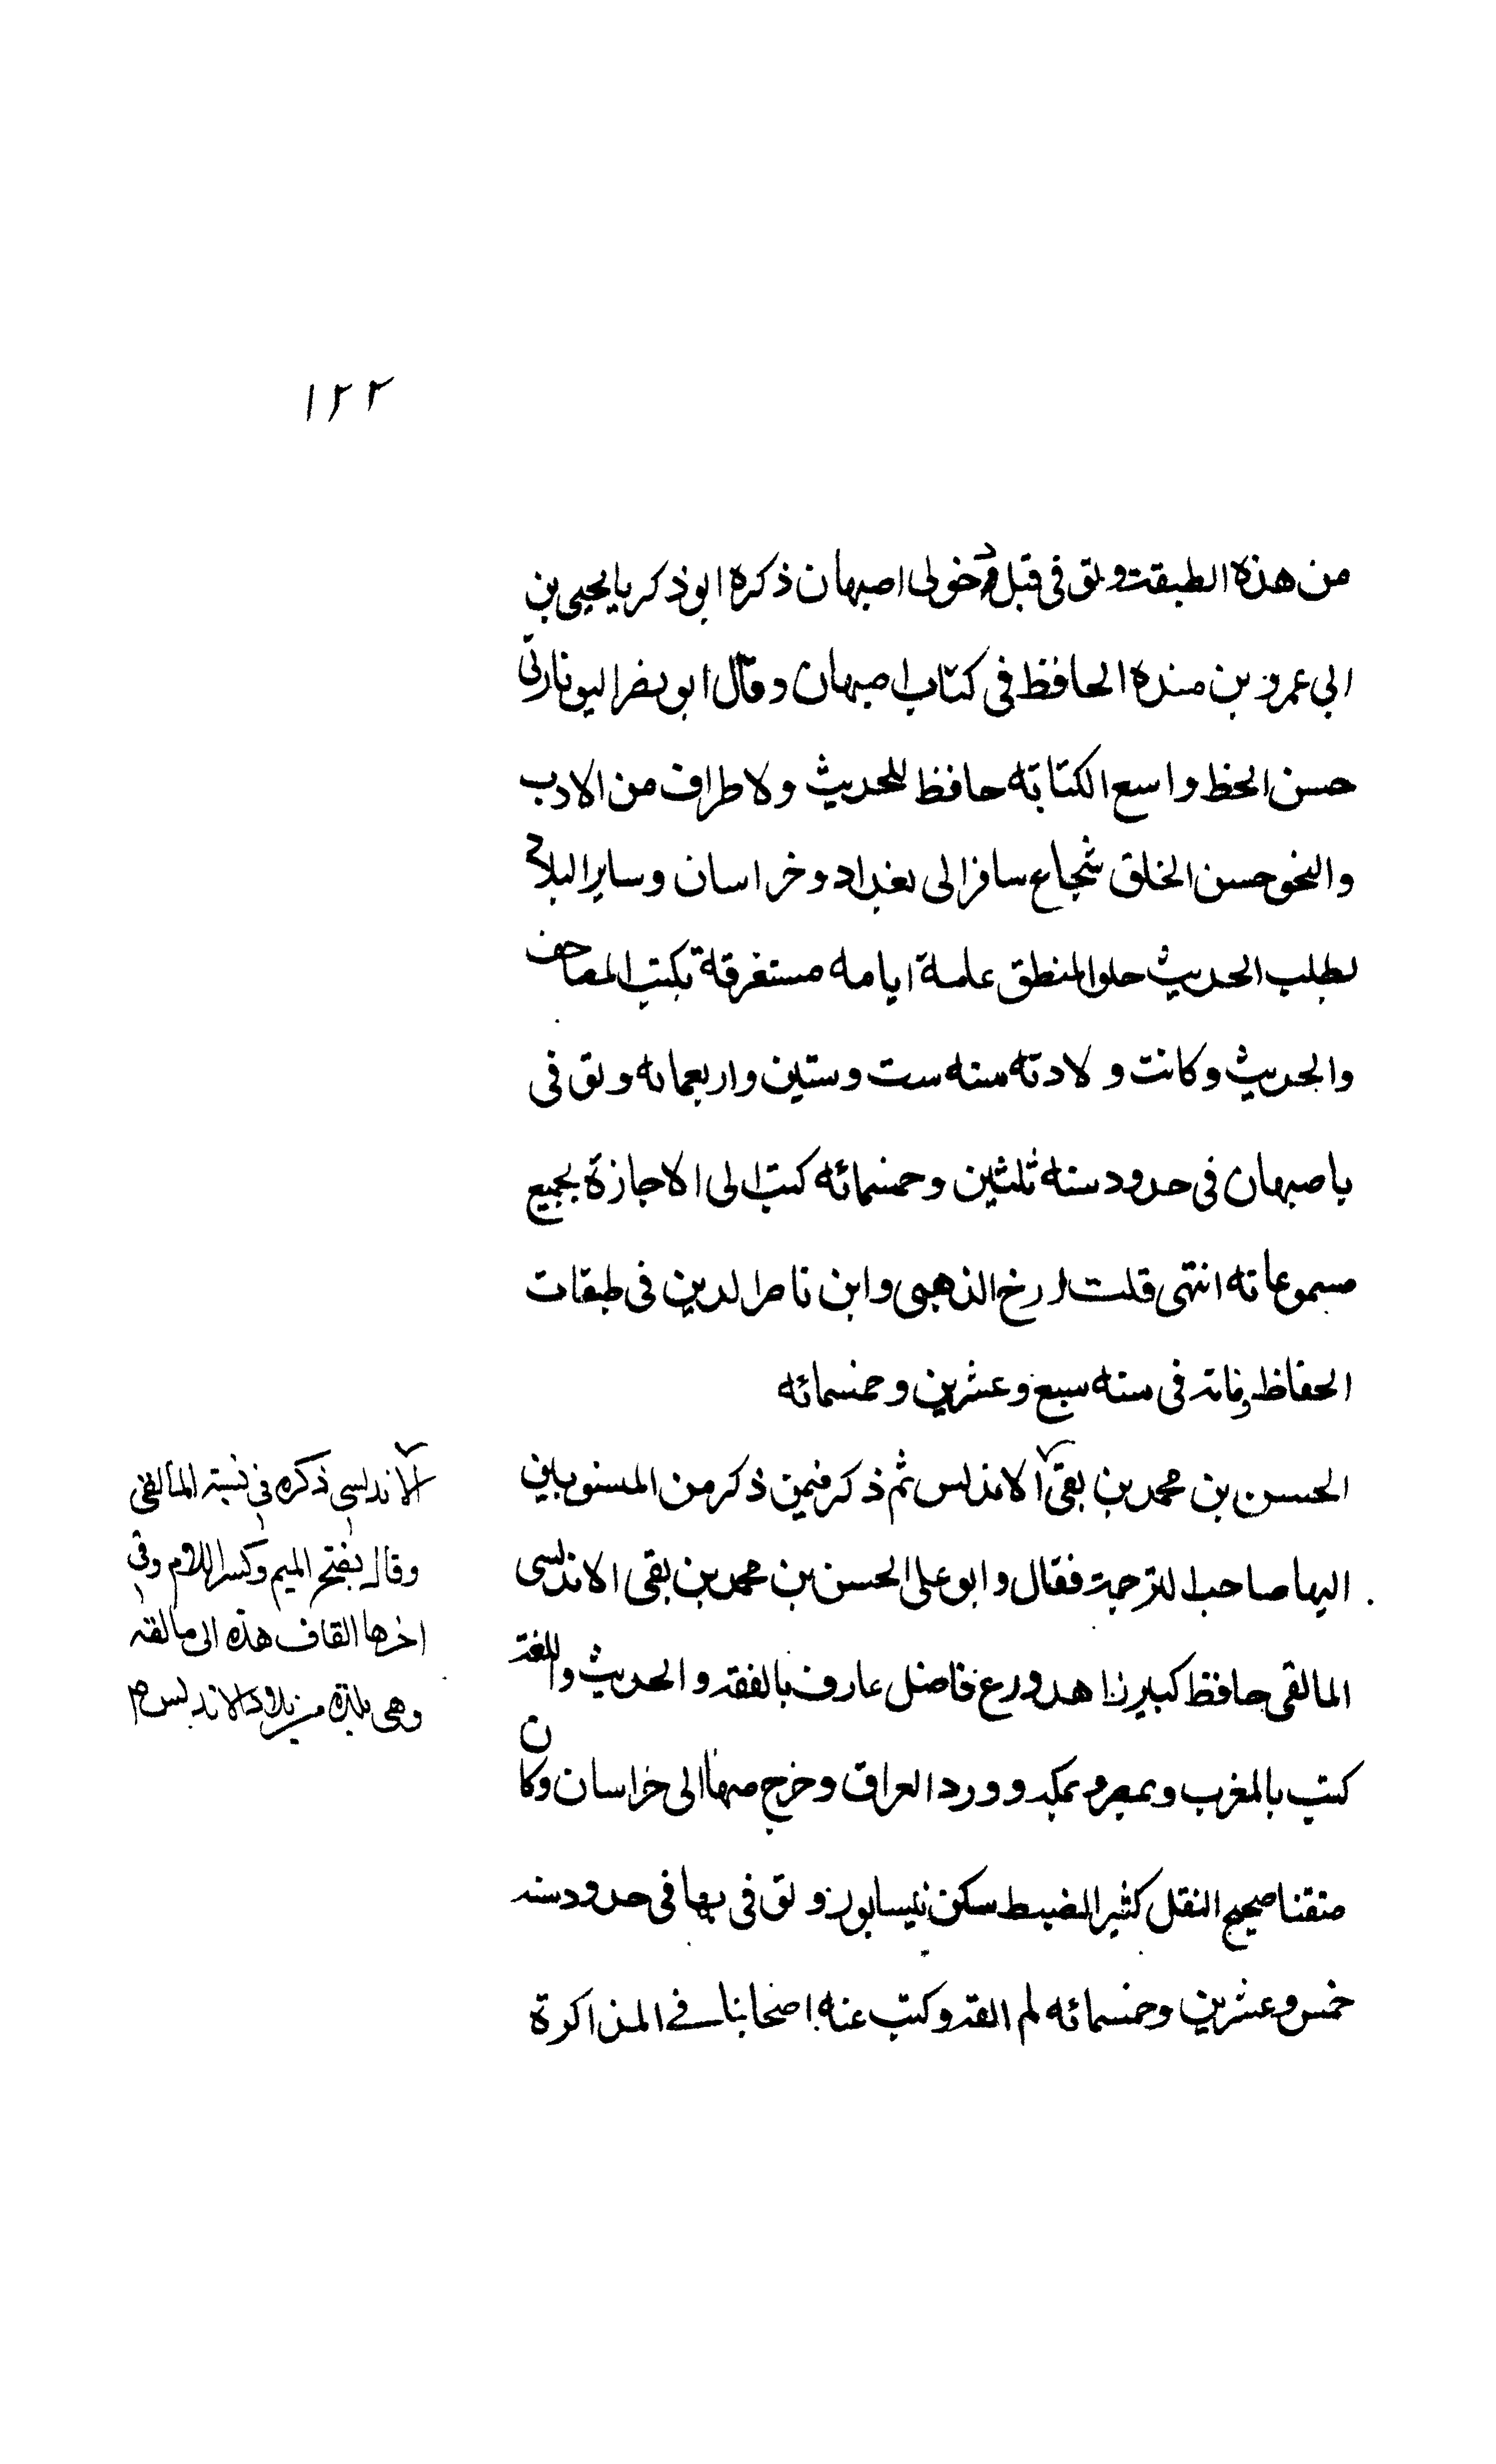 ١٢٢
من هذه الطبقة وتوفى قبل دخولى اصبهان ذكره ابو ذكريا يحيى بن
ابى عمرو بن منده الحافظ فى كتاب اصبهان وقال ابو نصر اليونارتى
حسن الخط واسع الكتابة حافظ للحديث ولاطراف من الادب
والنحو حسن الخلق شجاع سافر الى بغداد وخراسان وساير البلاد
لطلب الحديث حلو المنطق عامة ايامه مستغرقة بكتب المصاحف
والحديث وكانت ولادته سنه ست وستين واربعمائه وتوفى
باصبهان فى حدود سنه ثلثين وخمسمائه كتب الى الاجازة بجميع
مسموعاته انتهى قلت ارخ الذهبى وابن ناصر الدين فى طبقات
الحفاظ وفاته فى سنه سبع وعشرين وخمسمائه
الحسن بن محمد بن بقى الاندلس ثم ذكر فيمن ذكر من المنسوبين
اليها صاحب الترجمة فقال وابو على الحسن بن محمد بن بقى الاندلسى
المالقى حافظ كبير زاهد ورع فاضل عارف بالفقه والحديث واللغة
كتب بالمغرب وبمصر وبمكه وورد العراق وخرج منها الى خراسان وكان
متقنا صحيح النقل كثير الضبط سكن نيسابور وتوفى بها فى حدود سنه
خمس وعشرين وخمسمائه لم القه وكتب عنه اصحابنا فى المذاكرة
الاندلسى ذكره فى نسبة المالقى
وقال بفتح الميم وكسر اللام وفى
اخرها القاف هذه الى مالقه
وهى بلدة من بلاد الاندلس صح